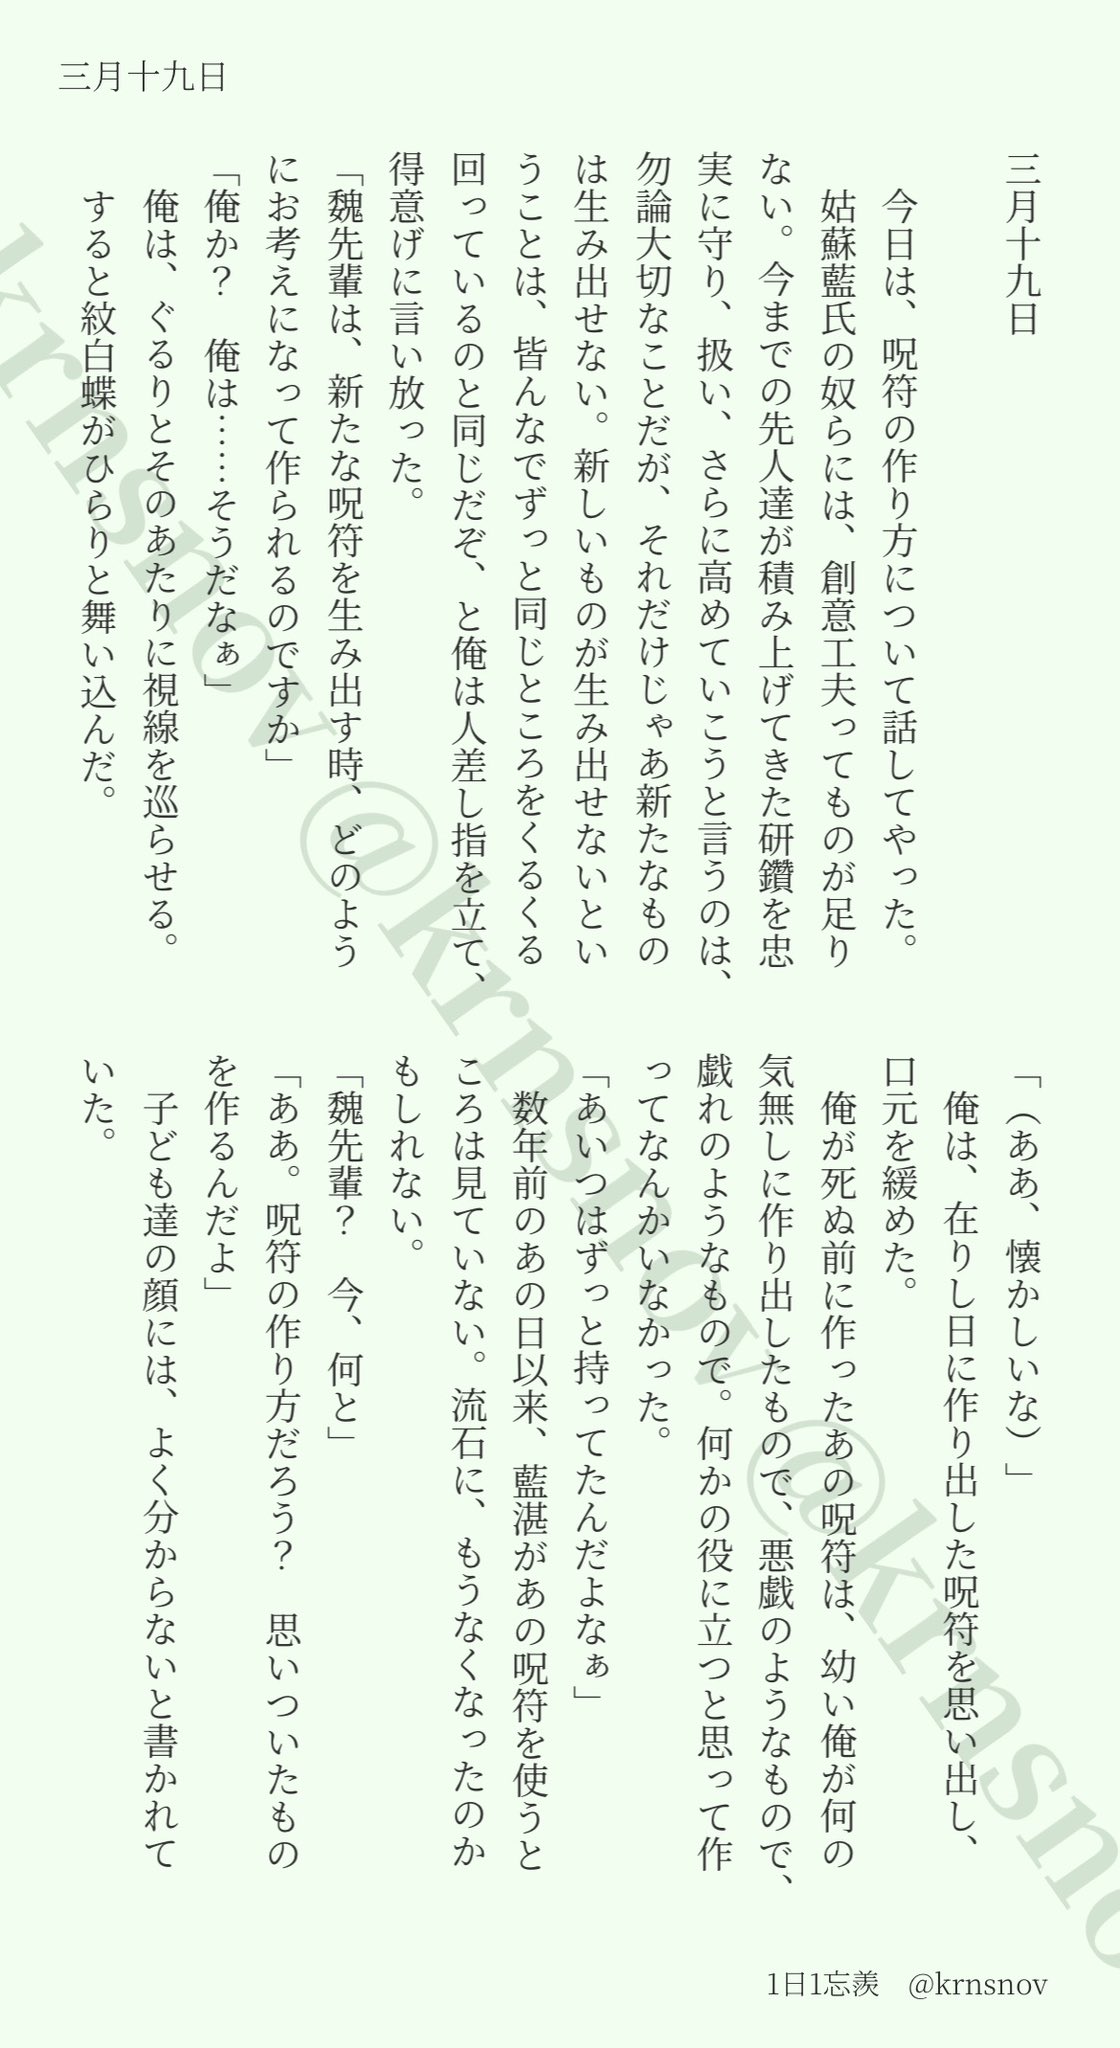 三月十九日
三月十九日
今日は、呪符の作り方について話してやった。
姑蘇藍氏の奴らには、創意工夫ってものが足り
ない。今までの先人達が積み上げてきた研鑽を忠
実に守り、扱い、さらに高めていこうと言うのは、
勿論大切なことだが、それだけじゃあ新たなもの
は生み出せない。新しいものが生み出せないとい
うことは、皆んなでずっと同じところをくるくる
回っているのと同じだぞ、と俺は人差し指を立て、
得意げに言い放った。
「魏先輩は、新たな呪符を生み出す時、どのよう
にお考えになって作られるのですか」
「俺か?　俺は……そうだなぁ」
俺は、ぐるりとそのあたりに視線を巡らせる。
すると紋白蝶がひらりと舞い込んだ。
「(ああ、懐かしいな)」
俺は、在りし日に作り出した呪符を思い出し、
口元を緩めた。
俺が死ぬ前に作ったあの呪符は、幼い俺が何の
気無しに作り出したもので、悪戯のようなもので、
戯れのようなもので。何かの役に立つと思って作
ってなんかいなかった。
「あいつはずっと持ってたんだよなぁ」
数年前のあの日以来、藍湛があの呪符を使うと
ころは見ていない。流石に、もうなくなったのか
もしれない。
「魏先輩?　今、何と」
「ああ。呪符の作り方だろう?　思いついたもの
を作るんだよ」
子ども達の顔には、よく分からないと書かれて
いた。
1日1忘羨　@krnsnov
krnsnov @krnsnov @krnsnov